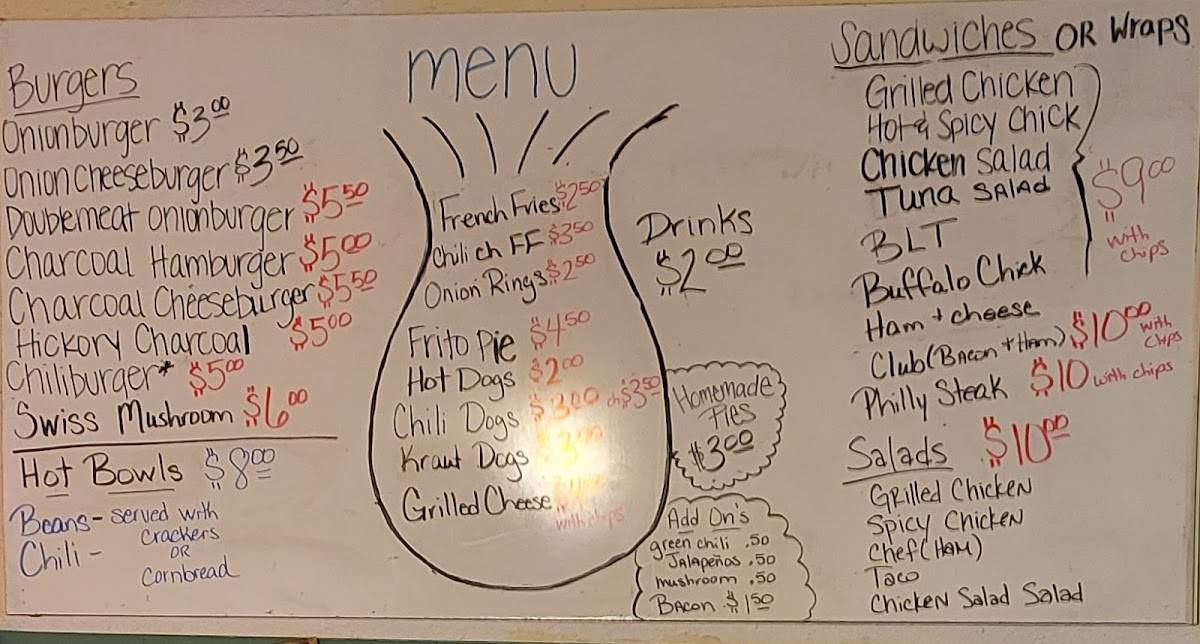 menu
Burgers
Onionburger $3.00
Onion Cheeseburger $3.50
Doublemeat Onionburger $5.50
Charcoal Hamburger $5.00
Charcoal Cheeseburger $5.50
Hickory Charcoal $5.00
Chiliburger* $5.00
Swiss Mushroom $6.00
Hot Bowls $8.00
Beans - served with
Crackers
OR
Chili - Cornbread
French Fries $2.50
Chili ch FF $3.50
Onion Rings $2.50
Frito Pie $4.50
Hot Dogs $2.00
Chili Dogs $3.00 ch $3.50
Kraut Dogs $3.00
Grilled Cheese
with chips
Drinks
$2.00
Homemade
Pies
$3.00
Add On's
green chili .50
Jalapeños .50
mushroom .50
Bacon $1.50
Sandwiches OR Wraps
Grilled Chicken
Hot & Spicy Chick
Chicken Salad
Tuna Salad
BLT
Buffalo Chick
Ham + cheese
$9.00
with
chips
Club (Bacon + Ham) $10.00 with chips
Philly Steak $10 with chips
Salads $10.00
Grilled Chicken
Spicy Chicken
Chef (Ham)
Taco
Chicken Salad Salad